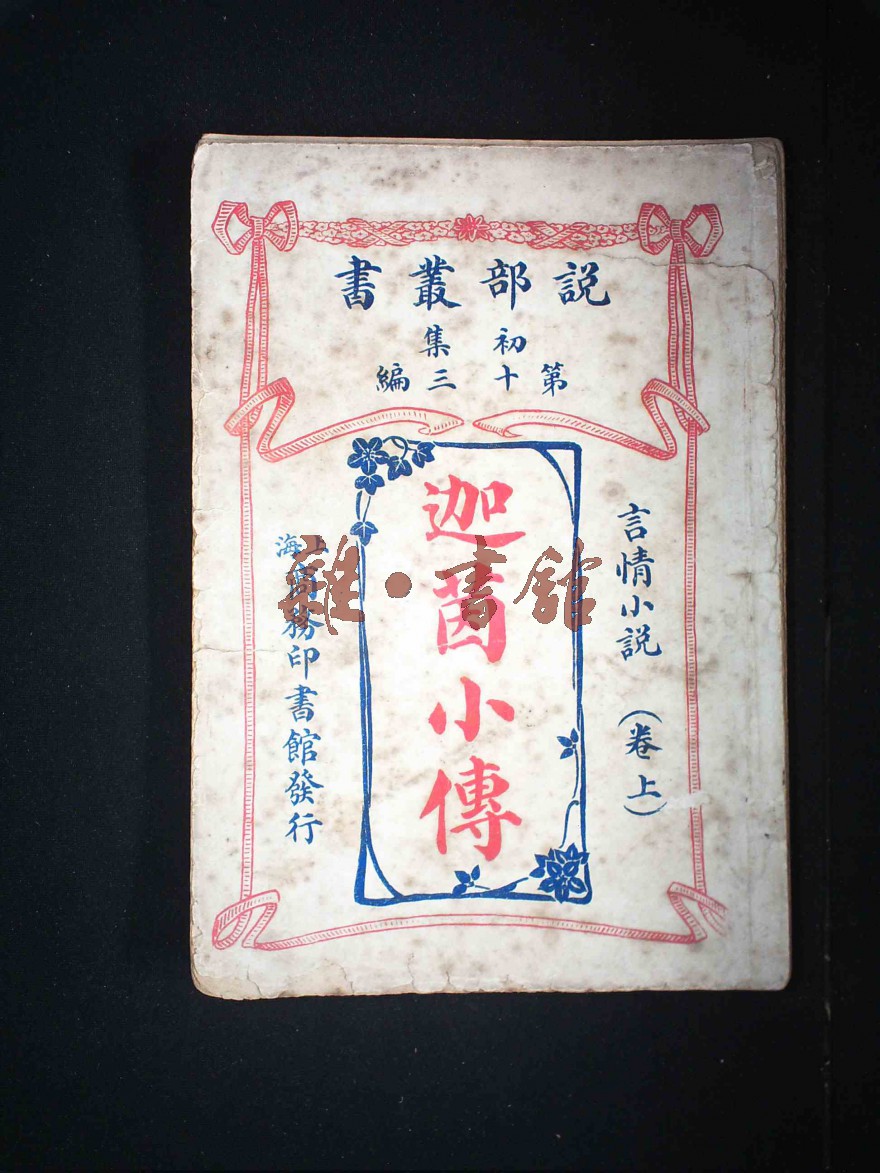 説部叢書
初集
第十三編
言情小説（卷上）
迦茵小傳
上海商務印書館發行
雜·書館